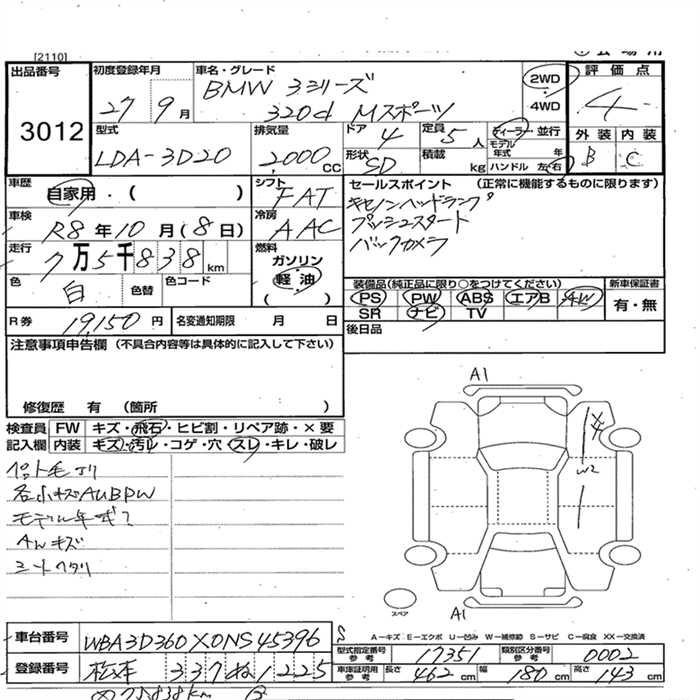 [2110]
出品番号 3012
初度登録年月 27 9月
車名・グレード BMW 3シリーズ
320d Mスポーツ
2WD
4WD
評価点 4
外装 内装
B C
型式 LDA-3D20
排気量 2,000 CC
ドア 4
定員 5人
ディーラー・並行
モデル年式 年
形状 SD
積載 kg
ハンドル 左・右
車歴 自家用・( )
シフト FAT
セールスポイント (正常に機能するものに限ります)
キセノンヘッドランプ
プッシュスタート
バックカメラ
車検 R8年10月(8日)
冷房 AAC
走行 7万5千838km
燃料 ガソリン
軽油
( )
色 白 色替 色コード
装備品(純正品に限り○をつけてください)
PS PW ABS エアB AW
SR ナビ TV
新車保証書
有・無
R券 19,150円
名変通知期限 月 日
後日品
注意事項申告欄(不具合内容等は具体的に記入して下さい)
修復歴 有 (箇所 )
検査員 FW キズ・飛石・ヒビ割・リペア跡・×要
記入欄 内装 キズ・汚レ・コゲ・穴・スレ・キレ・破レ
各小キズAUBPW
モデル年式?
AWキズ
シートヘタリ
A1
W2
A1
スペア
A-キズ E-エクボ U-凹み W-補修跡 S-サビ C-腐食 XX-交換済
車台番号 WBA3D360X0NS45396
型式指定番号参考 17351
類別区分番号参考 0002
登録番号 松本 337 ぬ 1225
車庫証明用参考 長さ 462cm 幅 180cm 高さ 143cm